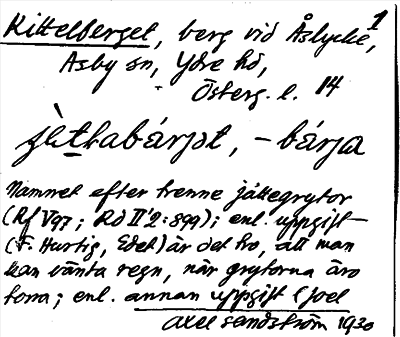 1
Kittelberget, berg vid Åslycke,
Asby sn, Ydre hd,
Österg. l. 14
jètlabárjət, – bárja
Namnet efter trenne jättegrytor
(Rf V97; Rd II'2:899); enl. uppgift
(F. Hurtig, Edet) är det tro, att man
kan vänta regn, när grytorna äro
torra; enl. annan uppgift (joel
Axel Sandström 1930